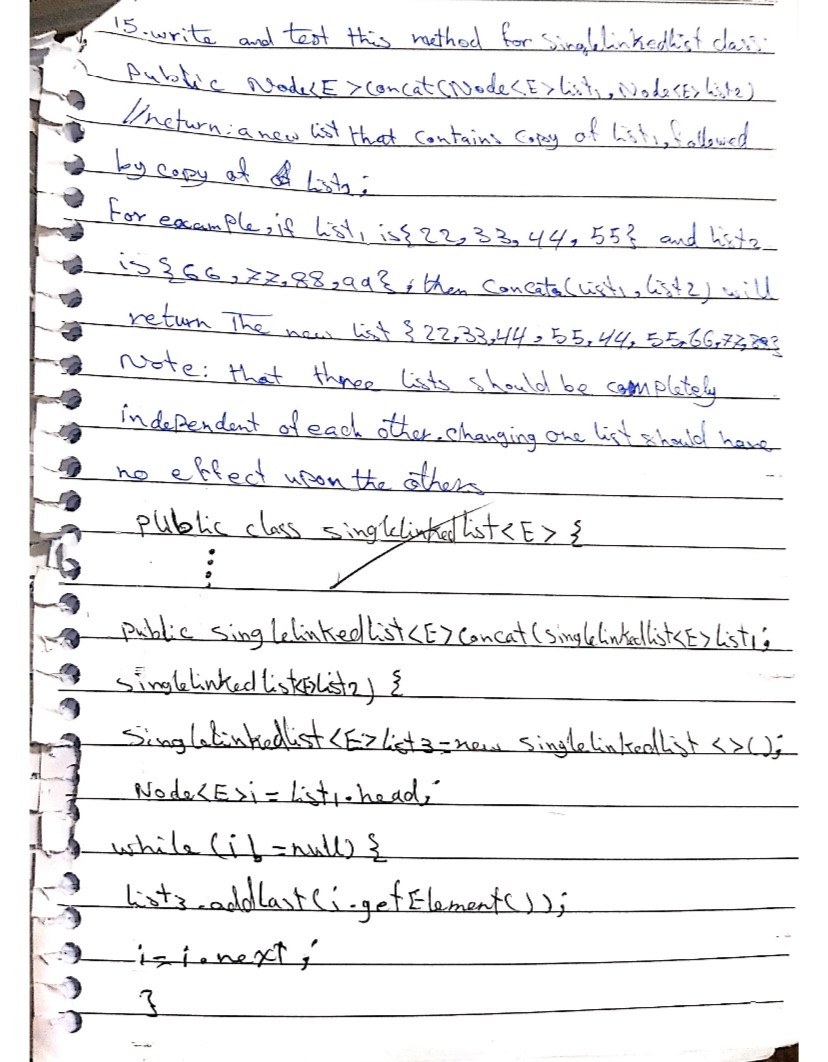 15. write and test this method for singlelinkedlist class:
Public Node<E>concat(Node<E>list1, Node<E>list2)
//return: a new list that contains copy of list1, followed
by copy of list2;
For example, if list1 is{22,33,44,55} and list2
is {66,77,88,99}, then concate(list1, list2) will
return The new list {22,33,44,55,44,55,66,77,88}
Note: that three lists should be completely
independent of each other. changing one list should have
no effect upon the others
public class singlelinkedlist<E> {
public singlelinkedlist<E>concat(singlelinkedlist<E>list1;
singlelinkedlist<E>list2) {
singlelinkedlist<E>list3=new singlelinkedlist<>();
Node<E>i = list1.head;
while (i!=null) {
list3.addLast(i.getElement());
i=i.next;
}